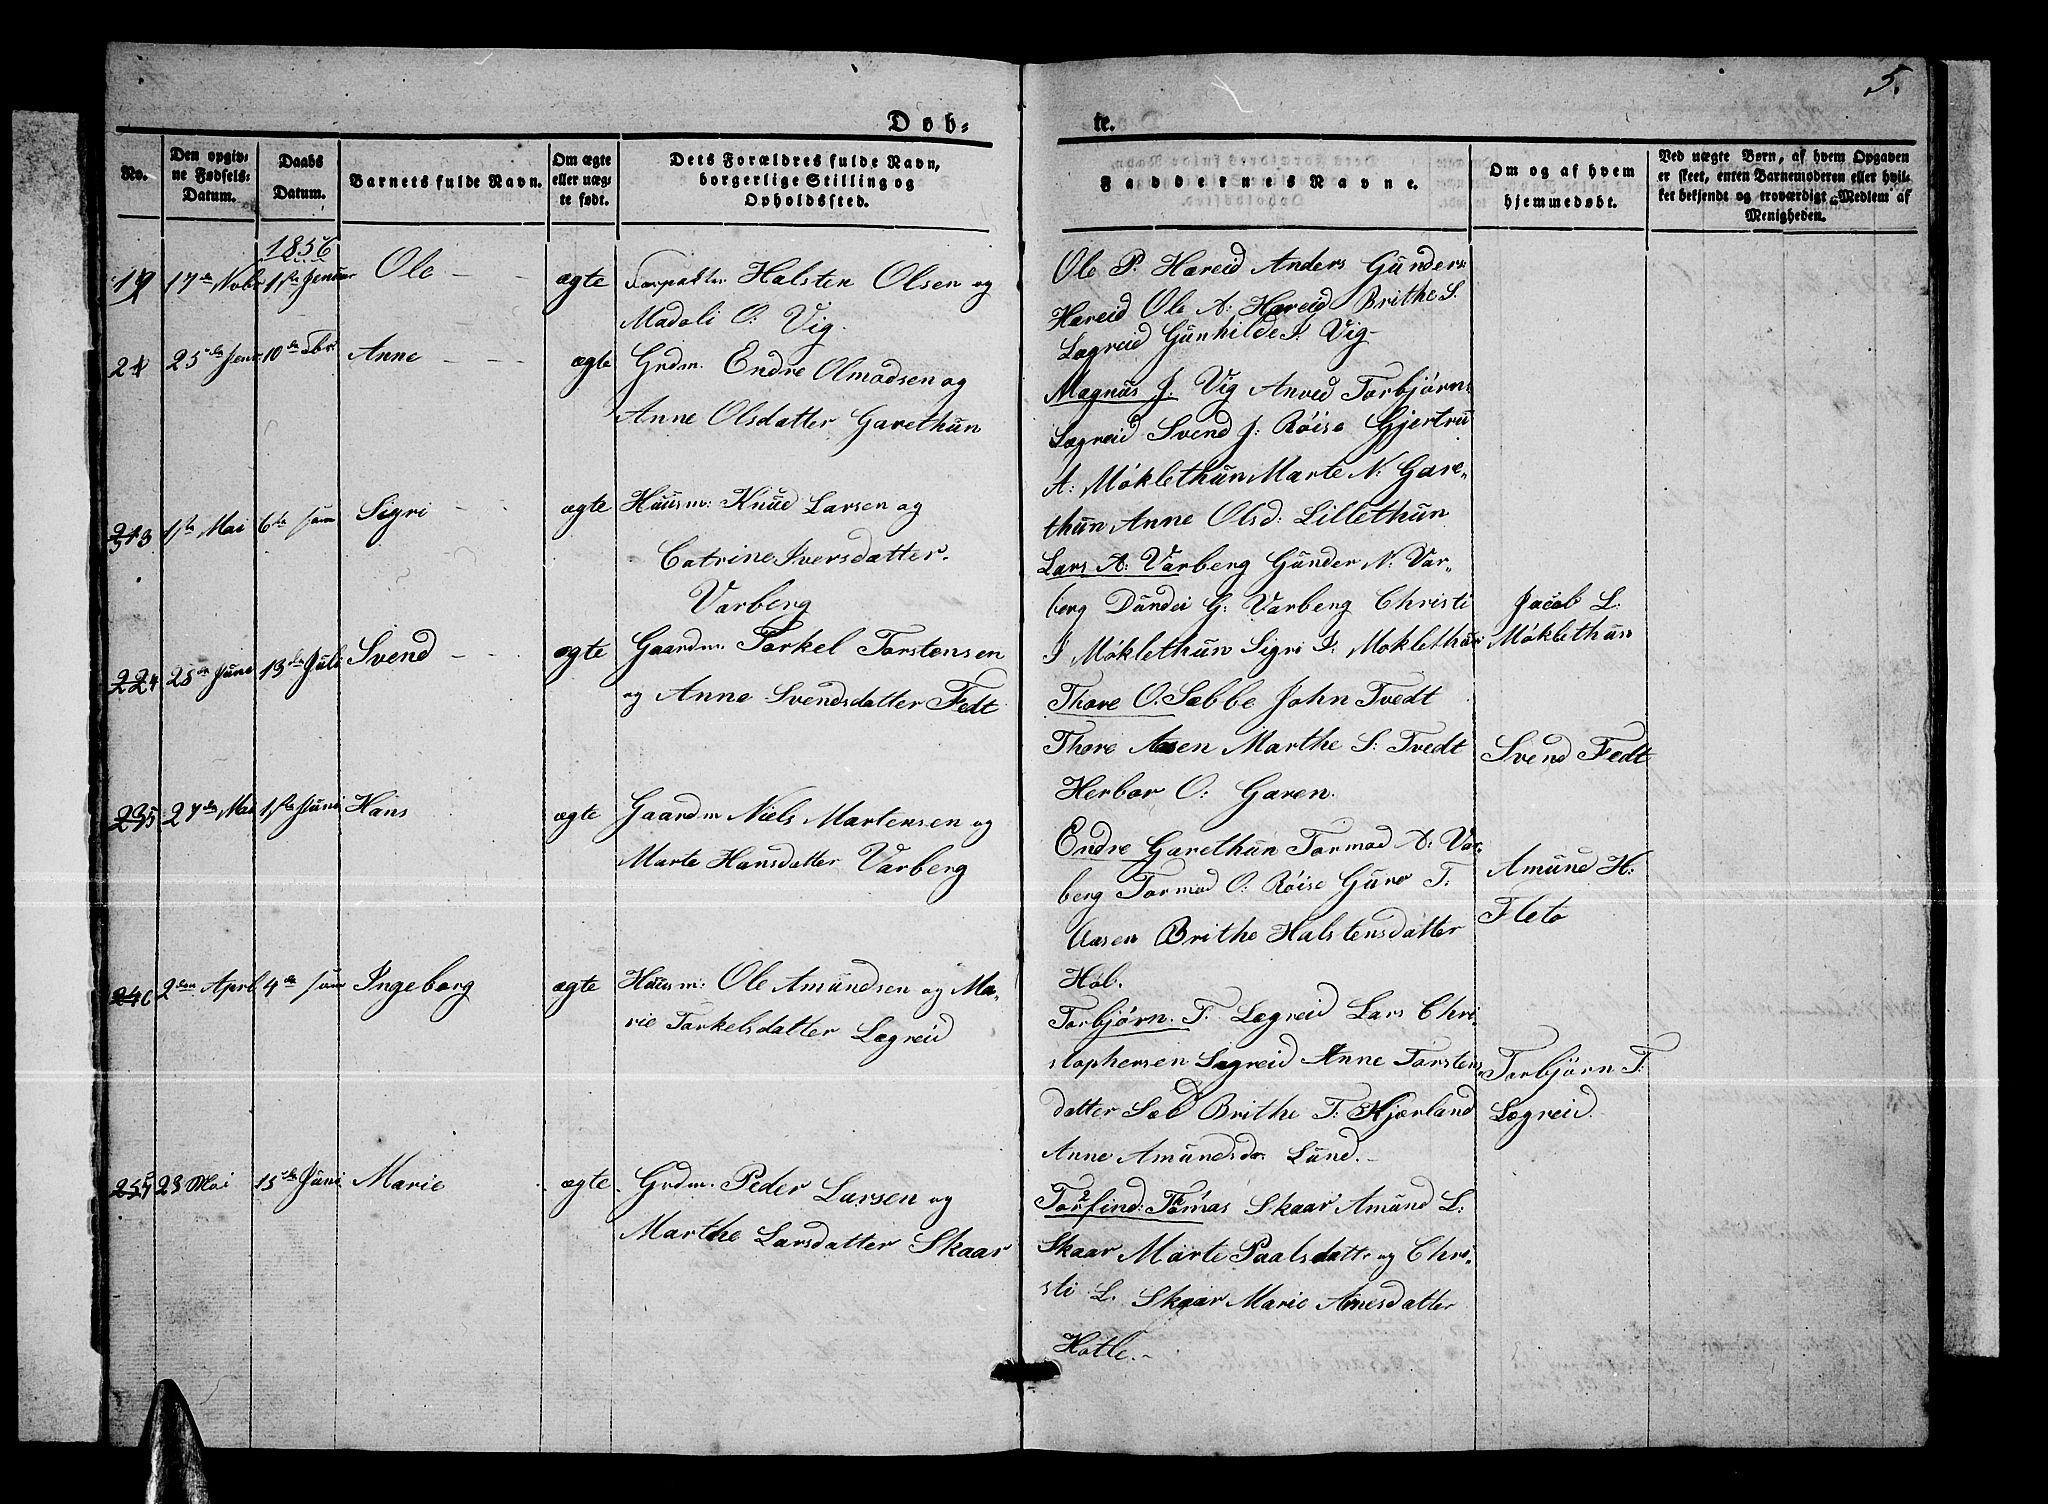 5.
Døb-
te.
No.
Den opgiv-
ne Fødsels-
Datum.
Daabs
Datum.
Barnets fulde Navn.
Om ægte
eller uæg-
te født.
Dets Forældres fulde Navn,
borgerlige Stilling og
Opholdssted.
Faddernes Navne.
Om og af hvem
hjemmedøbt.
Ved uægte Børn, af hvem Opgaven
er skeet, enten Barnemoderen eller hvil-
ket bekjendt og troværdigt Medlem af
Menigheden.
1856
19
17de Nobr
1ste Januar
Ole
ægte
Halsten Olsen og
Madali O: Vig.
Ole P. Hæreid Anders Gunders:
Hæreid Ole A: Hæreid Brithe S.
Lægreid Gunhilde I: Vig
25de Janr
10de Fbr:
Anne
ægte
Grdm. Endre Olmodsen og
Anne Olsdatter Garethun
Magnus J. Vig Anved Torbjørns
Lægreid Svend J: Røise Gjertru
A: Møklethun Marte N: Gare„
thun Anne Olsd: Lillethun
1ste Mai
6te Jam
Sigri
ægte
Huusm: Knud Larsen og
Catrine Iversdatter.
Varberg
Lars A: Varberg Gunder N: Var„
berg Dundei G: Varberg Christi
I Møklethun Sigri I: Moklethun
Jacob L:
Møklethun
224
28de Juni
13de Juli
Svend
ægte
Gaardm. Torkel Torstensen
og Anna Svendsdatter Fedt
Thore O. Sæbbe John Tvedt
Thore Aasen Marthe S: Tvedt
Herbor O: Garen.
Svend Fedt
235
27de Mai
1ste Juni
Hans
ægte
Gaardm Niels Martensen og
Marte Hansdatter Varberg
Endre Garethun Tormod A: Var-
berg Tormod O: Røise Guro T.
Aasen Brithe Halstensdatter
Hol.
Amund H:
Fleto
246
2den April
4de Jam
Ingeborg
ægte
Huusm: Ole Amundsen og Ma-
rie Torkelsdatter Lægreid
Torbjørn. T. Lægreid Lars Chri-
stophersen Lægreid Anne Torstens
datter Sæb Brithe T: Kjærland
Anne Amundsdr. Lund.
Torbjørn T:
Lægreid.
257
23 Mai
15de Juni
Marie
ægte
Grdm. Peder Larsen og
Marthe Larsdatter Skaar
Torfind: Tomas Skaar Amund L:
Skaar Marte Paalsdattr og Chri-
sti L. Skaar Marie Arnesdatter
Hotle.